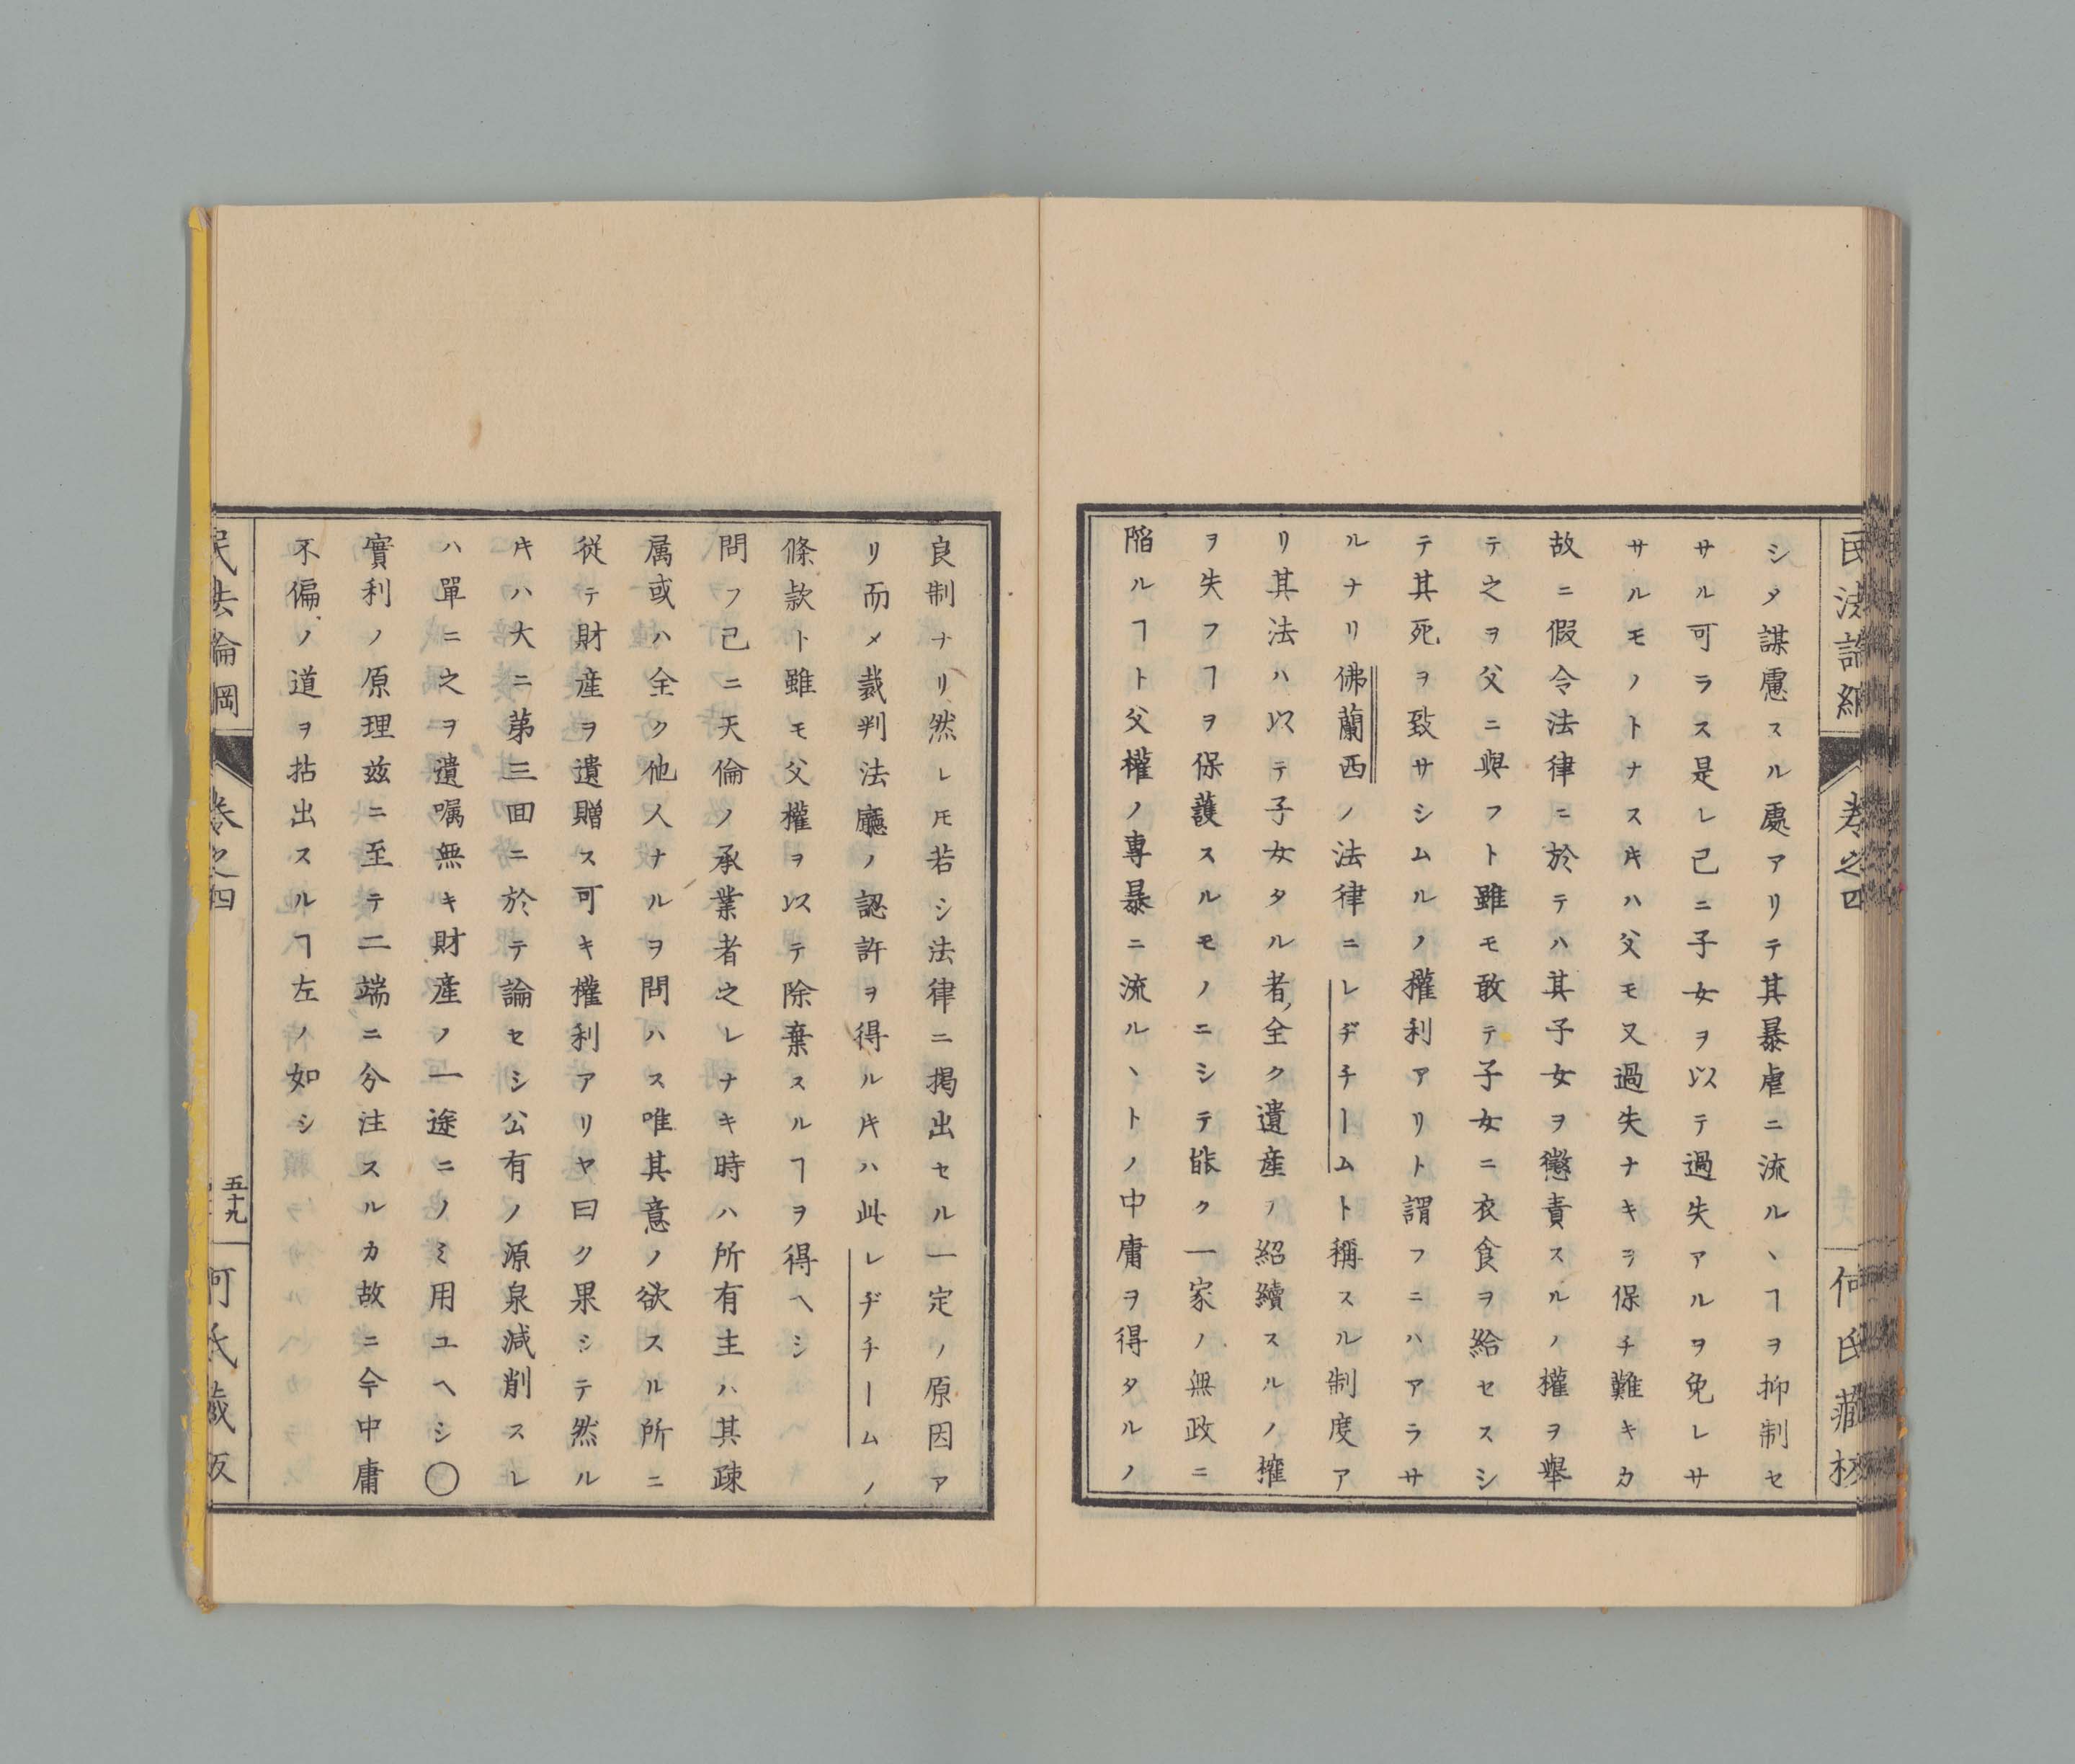 民法論綱
卷之四
何氏藏板
シタ謀慮スル處アリテ其暴虐ニ流ルヽヿヲ抑制セ
サル可ラス是レ已ニ子女ヲ以テ過失アルヲ免レサ
サルモノトナスキハ父モ又過失ナキヲ保チ難キカ
故ニ假令法律ニ於テハ其子女ヲ懲責スルノ權ヲ舉
テ之ヲ父ニ與フト雖モ敢テ子女ニ衣食ヲ給セスシ
テ其死ヲ致サシムルノ權利アリト謂フニハアラサ
ルナリ佛蘭西ノ法律ニレヂチームト稱スル制度ア
リ其法ハ以テ子女タル者全ク遺産ノ紹續スルノ權
ヲ失フヿヲ保護スルモノニシテ能ク一家ノ無政ニ
陷ルヿト父權ノ專暴ニ流ルヽトノ中庸ヲ得タルノ
良制ナリ然レ𪜈若シ法律ニ掲出セル一定ノ原因ア
リ而メ裁判法廳ノ認許ヲ得ルキハ此レヂチームノ
條款ト雖モ父權ヲ以テ除棄スルヿヲ得ヘシ
問フ己ニ天倫ノ承業者之レナキ時ハ所有主ハ其疎
属或ハ全ク他人ナルヲ問ハス唯其意ノ欲スル所ニ
從テ財産ヲ遺贈ス可キ權利アリヤ曰ク果シテ然ル
キハ大ニ第三囬ニ於テ論セシ公有ノ源泉減削スレ
ハ單ニ之ヲ遺嘱無キ財産ノ一途ニノミ用ユヘシ〇
實利ノ原理茲ニ至テ二端ニ分注スルカ故ニ今中庸
不偏ノ道ヲ拈出スルヿ左ノ如シ
民法論綱
卷之四
五十九
何氏藏板